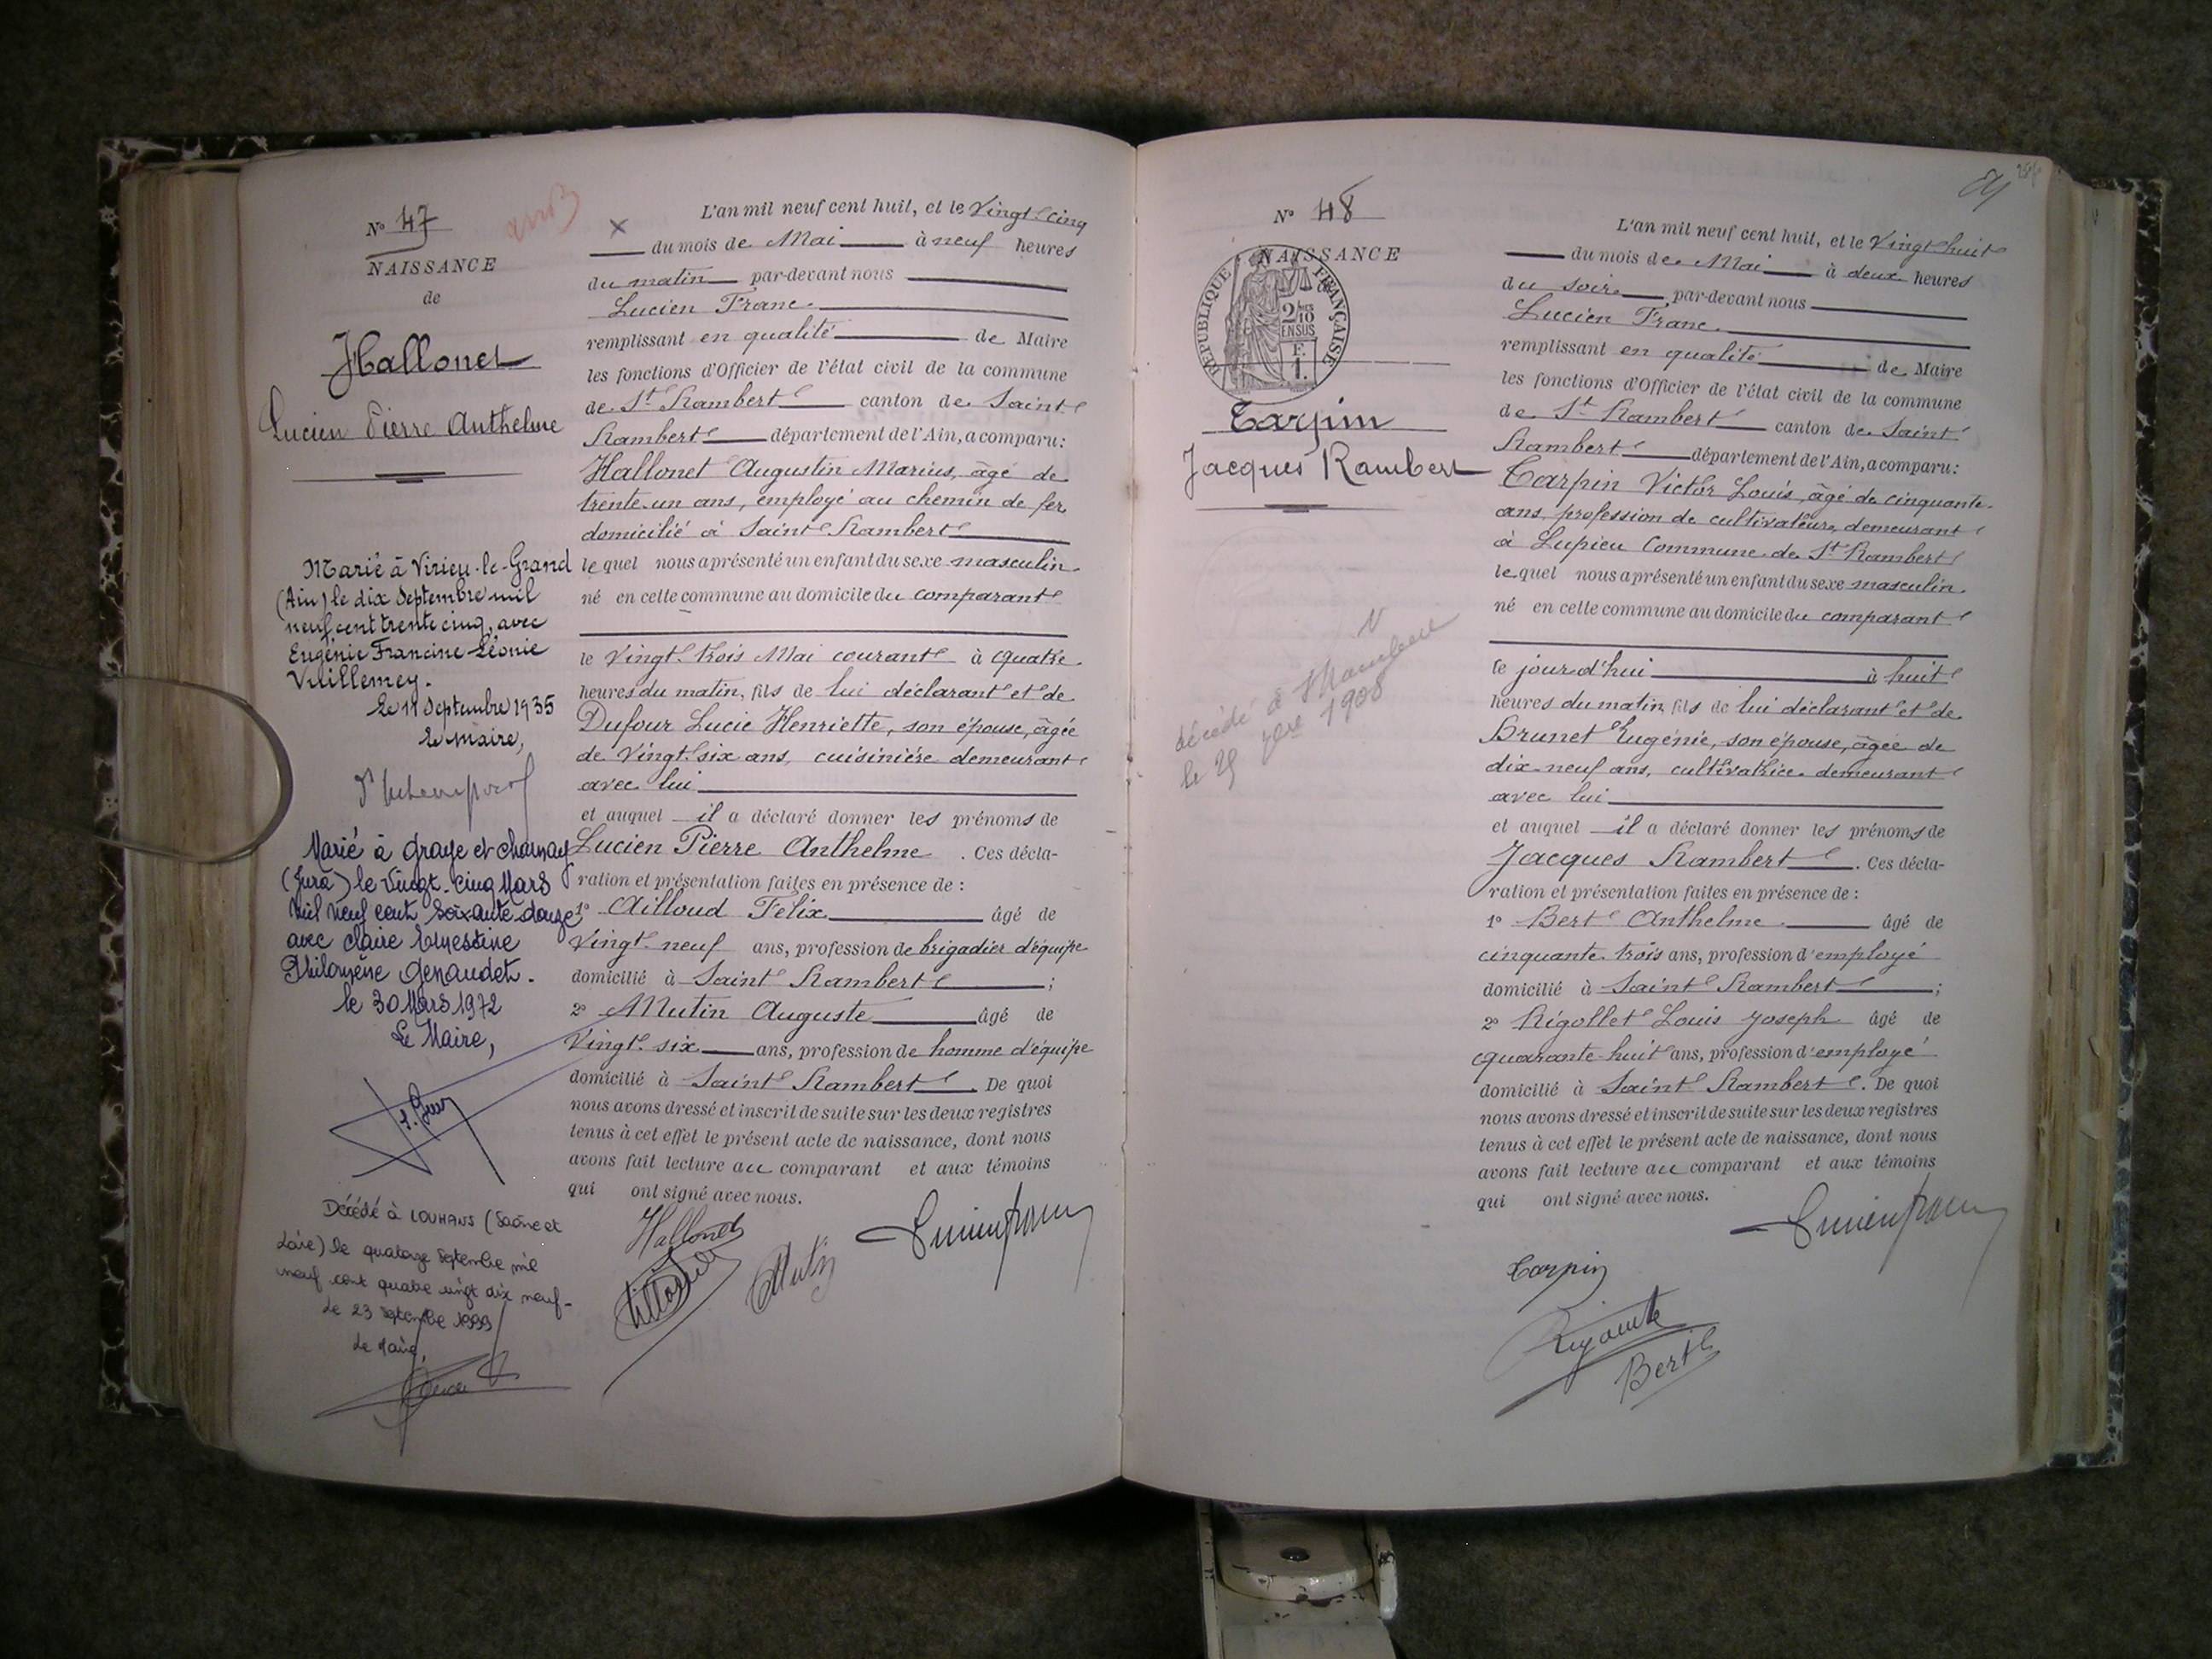 N° 47
NAISSANCE
de
Hallonet
Lucien Pierre Anthelme
Marié à Virieu-le-Grand
(Ain) le dix Septembre mil
neuf cent trente cinq, avec
Eugénie Francine Léonie
Vuillemey.
Le 11 Septembre 1935
Le Maire,
Marié à Graye et Charnay
(Jura) le Vingt-cinq Mars
Mil neuf cent soixante douze
avec Claire Ernestine
Philomène Genaudet.
le 30 Mars 1972
Le Maire,
Décédé à LOUHANS (Saône et
Loire) le quatorze Septembre mil
neuf cent quatre vingt dix neuf-
Le 23 septembre 1999
Le Maire,
L'an mil neuf cent huit, et le Vingt-cinq
du mois de Mai à neuf heures
du matin par-devant nous
Lucien Franc
remplissant en qualité de Maire
les fonctions d'Officier de l'état civil de la commune
de St Rambert canton de Saint
Rambert département de l'Ain, a comparu:
Hallonet Augustin Marius, âgé de
trente-un ans, employé au chemin de fer
domicilié à Saint Rambert
le quel nous a présenté un enfant du sexe masculin
né en cette commune au domicile du comparant
le Vingt-trois Mai courant à quatre
heures du matin, fils de lui déclarant et de
Dufour Lucie Henriette, son épouse, âgée
de Vingt-six ans, cuisinière demeurant
avec lui
et auquel il a déclaré donner les prénoms de
Lucien Pierre Anthelme. Ces décla-
ration et présentation faites en présence de :
1° Ailloud Félix âgé de
Vingt-neuf ans, profession de brigadier d'équipe
domicilié à Saint Rambert ;
2° Mutin Auguste âgé de
Vingt-six ans, profession de homme d'équipe
domicilié à Saint Rambert. De quoi
nous avons dressé et inscrit de suite sur les deux registres
tenus à cet effet le présent acte de naissance, dont nous
avons fait lecture au comparant et aux témoins
qui ont signé avec nous.
Hallonet
Mutin
Lucien Franc
N° 48
NAISSANCE
RÉPUBLIQUE FRANÇAISE
2/10
EN SUS
F.
1.
Tarpin
Jacques Rambert
décédé à St Rambert
le 25 7bre 1908
L'an mil neuf cent huit, et le Vingt-huit
du mois de Mai à deux heures
du soir par-devant nous
Lucien Franc
remplissant en qualité de Maire
les fonctions d'Officier de l'état civil de la commune
de St Rambert canton de Saint
Rambert département de l'Ain, a comparu:
Tarpin Victor Louis, âgé de cinquante
ans, profession de cultivateur, demeurant
à Lupieu Commune de St Rambert
le quel nous a présenté un enfant du sexe masculin
né en cette commune au domicile du comparant
le jour d'hui à huit
heures du matin, fils de lui déclarant et de
Brunet Eugénie, son épouse, âgée de
dix-neuf ans, cultivatrice demeurant
avec lui
et auquel il a déclaré donner les prénoms de
Jacques Rambert. Ces décla-
ration et présentation faites en présence de :
1° Bert Anthelme âgé de
cinquante trois ans, profession d'employé
domicilié à Saint Rambert ;
2° Rigollet Louis Joseph âgé de
quarante-huit ans, profession d'employé
domicilié à Saint Rambert. De quoi
nous avons dressé et inscrit de suite sur les deux registres
tenus à cet effet le présent acte de naissance, dont nous
avons fait lecture au comparant et aux témoins
qui ont signé avec nous.
Lucien Franc
Tarpin
Bert